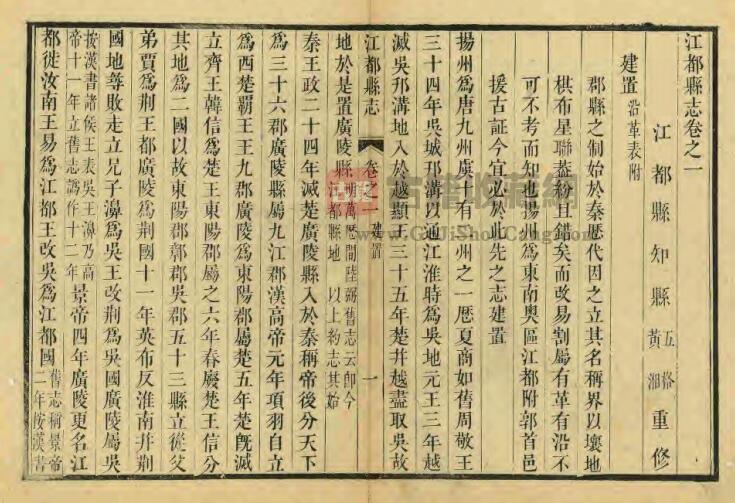 江都縣志卷之一
江都縣知縣 五格 黃湘 重修
建置沿革表附
郡縣之制始於秦歷代因之立其名稱界以壤地
棋布星聯葢紛且錯矣而改易割屬有革有沿不
可不考而知也揚州為東南奧區江都附郭首邑
援古証今宜必於此先之志建置
揚州為唐九州虞十有二州之一歷夏商如舊周敬王
三十四年吳城邗溝以通江淮時為吳地元王三年越
滅吳邗溝地入於越顯王三十五年楚并越盡取吳故
江都縣志 卷之一 建置 一
地於是置廣陵縣明萬歷間陸弼舊志云即今江都縣地以上約志其始
秦王政二十四年滅楚廣陵縣入於秦稱帝後分天下
為三十六郡廣陵縣屬九江郡漢高帝元年項羽自立
為西楚霸王王九郡廣陵為東陽郡屬楚五年楚旣滅
立齊王韓信為楚王東陽郡屬之六年春廢楚王信分
其地為二國以故東陽郡鄣郡吳郡五十三縣立從父
弟賈為荆王都廣陵為荆國十一年英布反淮南并荆
國地尋敗走立兄子濞為吳王改荆為吳國廣陵屬吳
按漢書諸侯王表吳王濞乃高帝十一年立舊志譌作十二年景帝四年廣陵更名江
都徙汝南王易為江都王改吳為江都國舊志稱景帝二年按漢書
古籍收藏網
www.GuJiShouCang.com